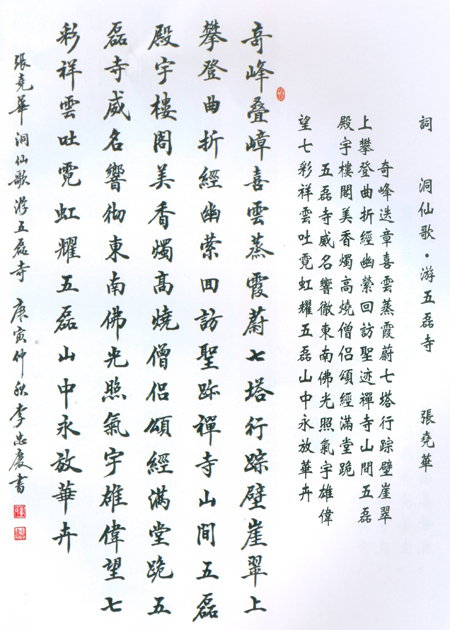 詞 洞仙歌·游五磊寺 張堯華
奇峰迭章喜雲蒸霞蔚七塔行踪壁崖翠
上攀登曲折經幽縈回訪聖迹禪寺山間五磊
殿宇樓閣美香燭高燒僧侶頌經滿堂跪
五磊寺威名響徹東南佛光照氣宇雄偉
望七彩祥雲吐霓虹耀五磊山中永放華卉
奇峰叠嶂喜雲蒸霞蔚七塔行踪壁崖翠上
攀登曲折經幽縈回訪聖跡禪寺山間五磊
殿宇樓閣美香燭高燒僧侶頌經滿堂跪五
磊寺威名響彻東南佛光照氣宇雄偉望七
彩祥雲吐霓虹耀五磊山中永放華卉
張堯華洞仙歌游五磊寺 庚寅仲秋李忠慶書